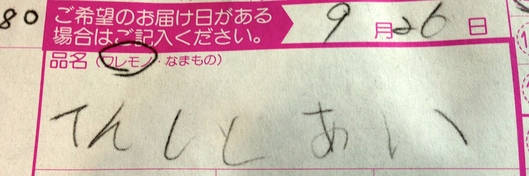 80
ご希望のお届け日がある
場合はご記入ください。
9月26日
品名（ワレモノ・なまもの）
てんしとあい